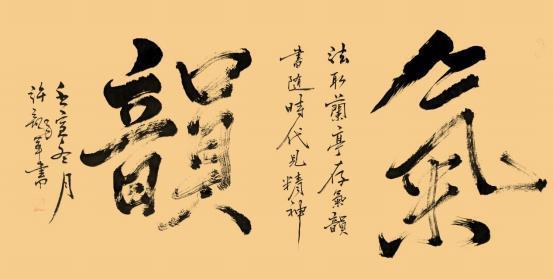 氣
法取蘭亭存氣韻
書隨時代見精神
韻
壬寅冬月
許軍書